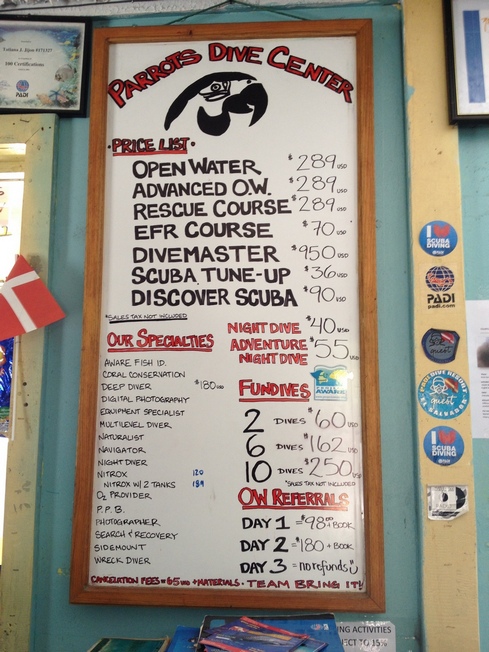 Tatiana J. Jipsn #172327
100 Certifications
PADI
PARROTS DIVE CENTER
• PRICE LIST •
OPEN WATER $289 USD
ADVANCED O.W. $289 USD
RESCUE COURSE $289 USD
EFR COURSE $70 USD
DIVEMASTER $950 USD
SCUBA TUNE-UP $36 USD
DISCOVER SCUBA $90 USD
*SALES TAX NOT INCLUDED
OUR SPECIALTIES
AWARE FISH I.D.
CORAL CONSERVATION
DEEP DIVER $180 USD
DIGITAL PHOTOGRAPHY
EQUIPMENT SPECIALIST
MULTILEVEL DIVER
NATURALIST
NAVIGATOR
NIGHT DIVER
NITROX 120
NITROX W/ 2 TANKS 189
O2 PROVIDER
P.P.B.
PHOTOGRAPHER
SEARCH & RECOVERY
SIDEMOUNT
WRECK DIVER
NIGHT DIVE $40 USD
ADVENTURE NIGHT DIVE $55 USD
FUNDIVES
PROJECT AWARE
2 DIVES $60 USD
6 DIVES $162 USD
10 DIVES $250 USD
*SALES TAX NOT INCLUDED
OW REFERRALS
DAY 1 = $98.00 + BOOK
DAY 2 = $180 + BOOK
DAY 3 = no refunds
CANCELATION FEES = 65 USD + MATERIALS • TEAM BRING IT!
I SCUBA DIVING
PADI
padi.com
quest
PADI DIVE RESORT
quest
EL SALVADOR
I SCUBA DIVING
PADI
NG ACTIVITIES
JECT TO 15%